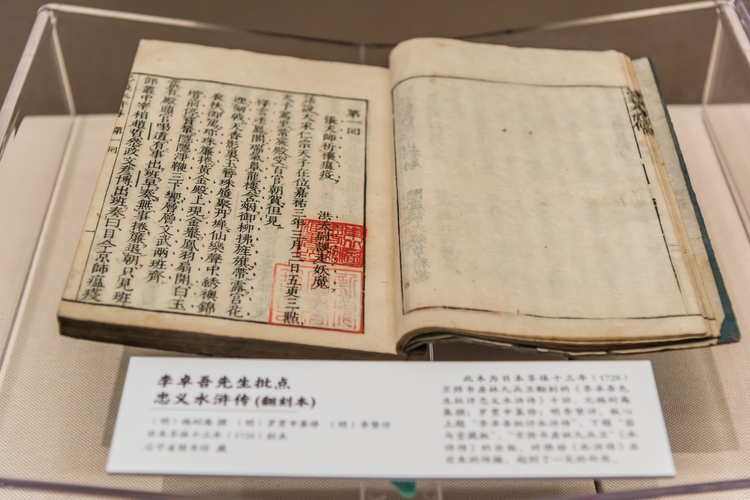 第一回
張天師祈禳瘟疫 洪太尉誤走妖魔
話說大宋仁宗天子在位嘉祐三年三月三日五更三點
天子駕坐紫宸殿受百官朝賀但見
祥雲迷鳳閣瑞氣罩龍樓含烟御柳拂旌旗帶露宮花
迎劍戟天香影裏玉簪珠履聚丹墀仙樂聲中綉襖錦
衣扶御駕珍珠簾捲黃金殿上現金轝鳳羽扇開白玉
階前停寶輦隱隱淨鞭三下響層層文武兩班齊
當有殿頭官喝道有事出班早奏無事捲簾退朝只見班
部叢中宰相趙哲參政文彥博出班奏曰目今京師瘟疫
第一回
李卓吾先生批点
忠义水浒传(翻刻本)
(明)施耐庵 撰 (明)罗贯中纂修 (明)李贽评
日本享保十三年(1728)刻本
辽宁省图书馆 藏
此本为日本享保十三年(1728)
京师书房林九兵卫翻刻的《李卓吾先
生批评忠义水浒传》十回,元施耐庵
集撰;罗贯中纂修;明李贽评。版心
上题“李卓吾批评水浒传”,下题